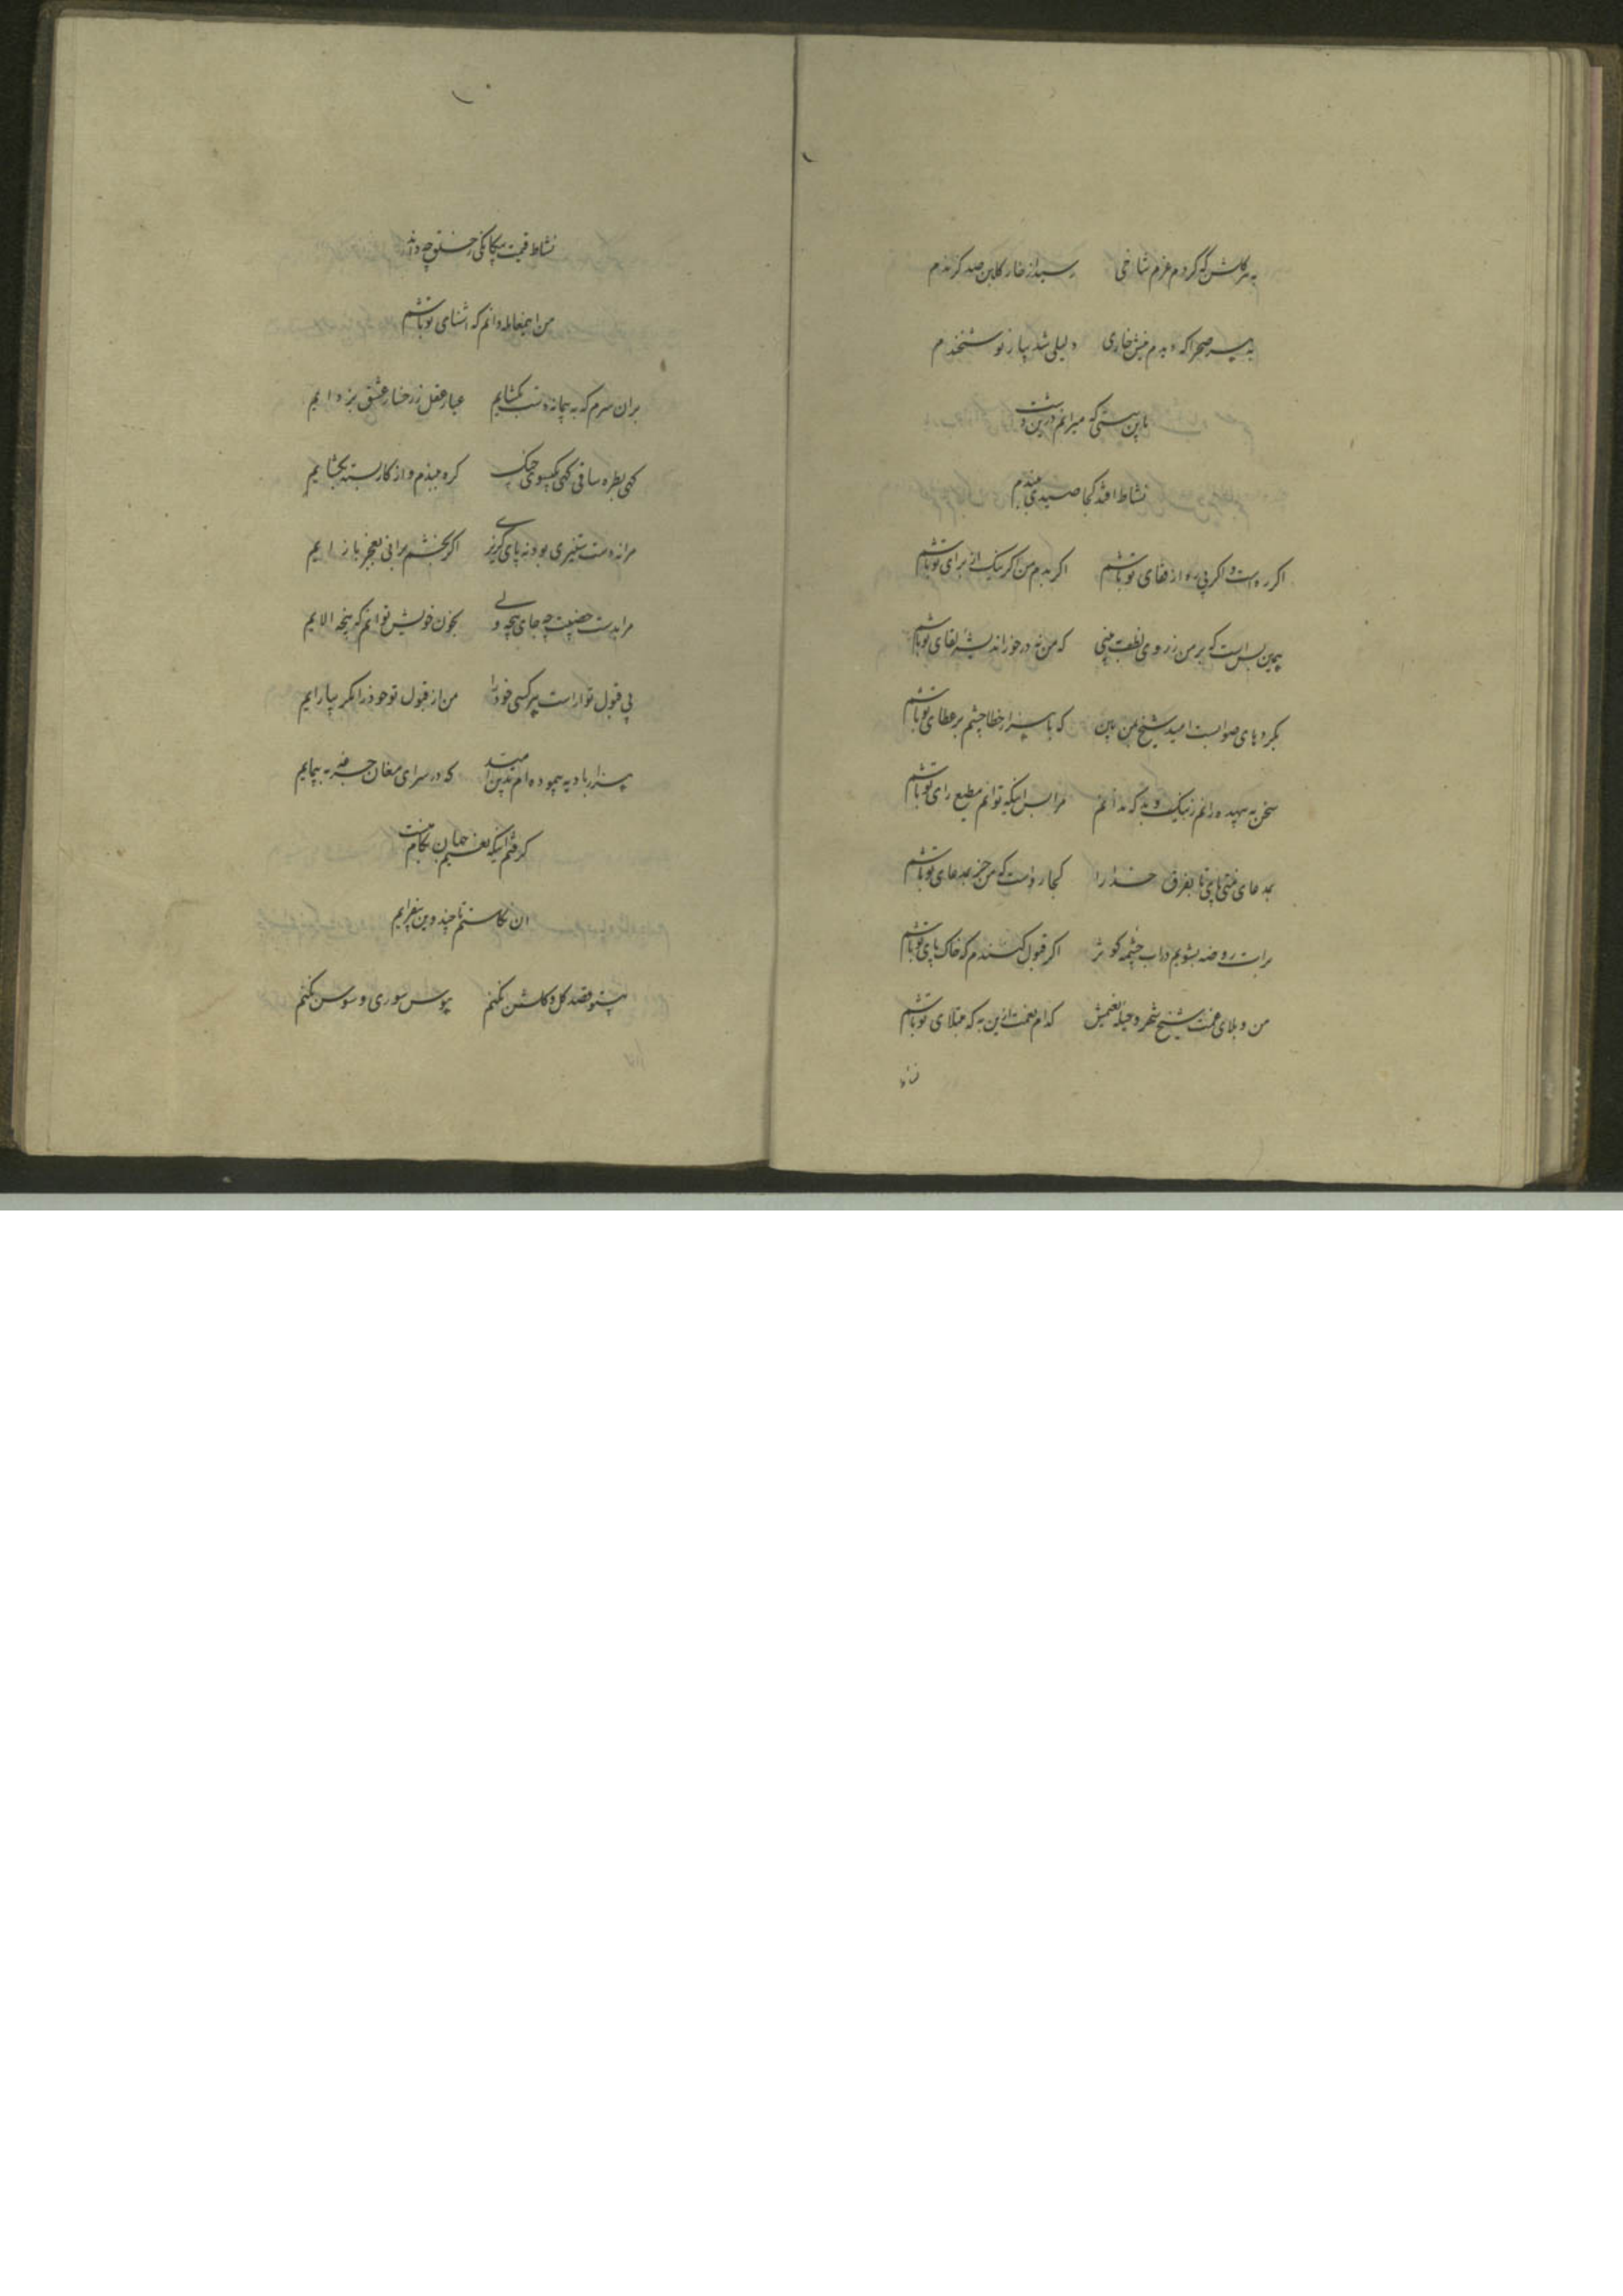 به هر گلشن که کردم عزم شاخی رسید از خار گلبن صد گزندم
به هر صحرا که دیدم نیش خاری دلیلی شد بپا ز نو شخندم
باین پستی که میرانم درین دشت
نشاط افتد کجا صیدی ببندم
اگر ره است و اگر بی ره از قفای تو باشم اگر بدم من اگر نیک از برای تو باشم
همین بس است که بر من ز روی لطف ببینی که من نه در خور اندیشه لقای تو باشم
بکردهای صوابست امید شیخ و من این که با هزار خطا چشم بر عطای تو باشم
سخن بیهده رانم ز نیک و بد که ندانم مرا بس اینکه توانم مطیع رای تو باشم
بمدعای منی پای تا بفرق خدا را کجا رواست که من جز بمدعای تو باشم
برات روضه بشویم در آب چشمه کوثر اگر قبول کنندم که خاک پای تو باشم
من و بلای محبت شیخ شهر و نعیمش کدام نعمت ازین به که مبتلای تو باشم
نشاط
نشاط قیمت بیگانگی خلق چه داند
من این معامله دانم که آشنای تو باشم
بر آن سرم که به پیمانه دست بگشایم غبار عقل ز رخسار عشق بزدایم
گهی بطره ساقی گهی بگیسوی چنگ گره ببندم و از کار بسته بگشایم
مرا نه دست ستیزی بود نه پای گریز اگر بخشم برانی بعجز باز آیم
مرا بدست ضعیفت چه جای پنجه ولی بخون خویش توانم که پنجه آلایم
پی قبول تو آراست هر کسی خود را من از قبول تو خود را مگر بیارایم
هزار بادیه پیموده ام بدین امید که در سرای مغان جرعه به پیمایم
گرفتم اینکه نعیم جهان بکام منست
ازان نکاستم تا چند و این بیفزایم
بیتو قصد گل و گلشن نکنم هوس سوری و سوسن نکنم